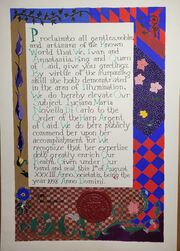 Proclaim to all gentles, nobles,
and artisans of the Known
World that We, Ivan and
Anastasiia, King and Queen
of Caid, give you greetings.
By virtue of the illuminating
skill she hath demonstrated
in the area of Illumination,
We do hereby elevate Our
Subject, Luciana Maria
Novella di Carlo to the
Order of the Harp Argent
of Caid. We do here publicly
commend her upon her
accomplishment for We
recognize that her expertise
doth greatly enrich Our
Realm. Given under Our
hand and seal this 1st of August
XXXIII Anno Societatis, being the
year 1998 Anno Domini.